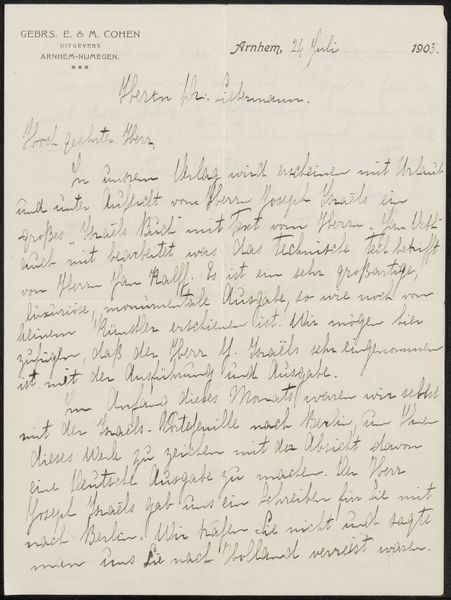 GEBRS. E. & M. COHEN
UITGEVERS
ARNHEM-NIJMEGEN.
Arnhem, 24 Juli 1903.
Herrn Dr. Liebermann.
Hoch geehrter Herr,
In unsrem Verlag wird erscheinen mit Urlaub
und unter Aufsicht von Herrn Joseph Israëls ein
großes "Israëls Buch" mit Text vom Herrn Jan Veth
auch mit bearbeitet was das Technische Teil betrifft
von Herrn Jan Kalff. Es ist ein sehr großartige,
luxuriöse, monumentale Ausgabe, so wie noch von
keinem Künstler erschienen ist. Wir mögen hier
zufügen, daß der Herr J. Israëls sehr eingenommen
ist mit der Ausführung und Ausgabe.
Im Anfang dieses Monats waren wir selbst
mit der Israëls-Portefeuille nach Berlin, um Ihnen
dieses Werk zu zeichen mit der Absicht davon
eine Deutsche Ausgabe zu machen. Der Herr
Joseph Israëls gab uns ein Schreiben für Sie mit
nach Berlin. Wir trafen Sie nicht und sagte
man uns Sie nach Holland verreist waren.